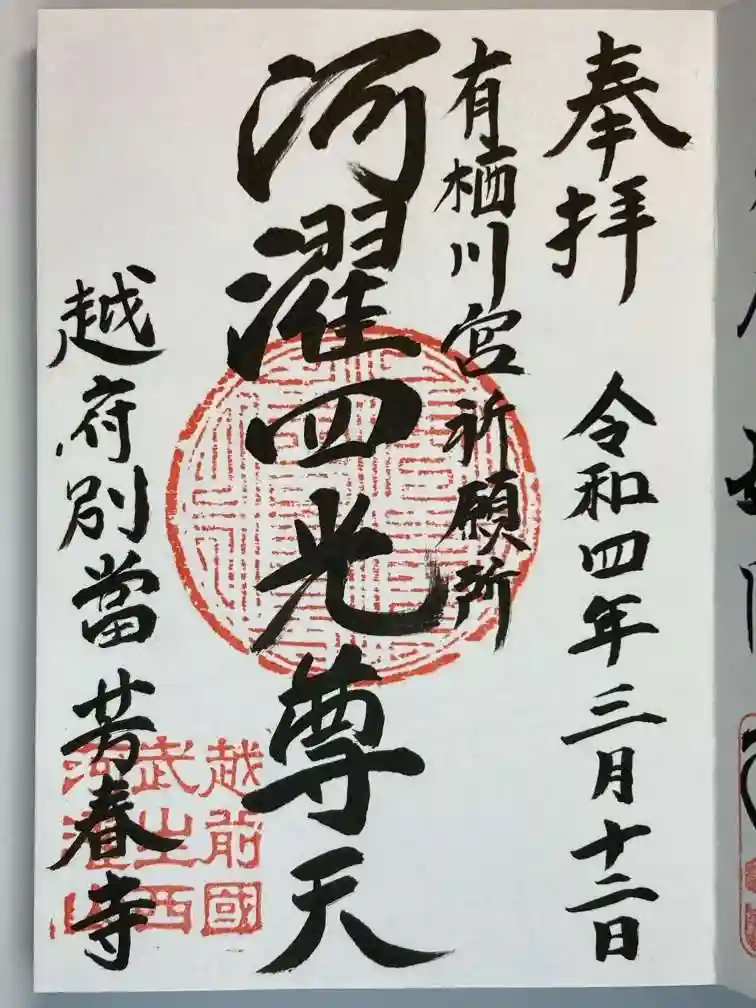 奉拝
令和四年三月十二日
有栖川宮祈願所
河濯四光尊天
越府別當 芳春寺
越前國
武生西
河濯山